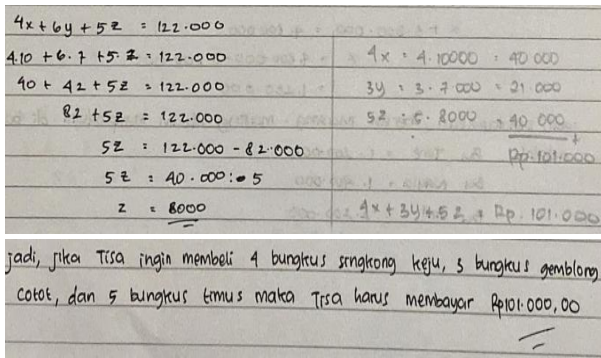 4x + 6y + 5z = 122.000
4.10 + 6.7 + 5.z = 122.000
40 + 42 + 5z = 122.000
82 + 5z = 122.000
5z = 122.000 - 82.000
5z = 40.000 : 5
z = 8000
4x = 4.10000 = 40 000
3y = 3.7.000 = 21 000
5z = 5.8000 = 40 000 +
Rp.101.000
4x + 3y + 5z = Rp. 101.000
jadi, jika Tisa ingin membeli 4 bungkus singkong keju, 3 bungkus gemblong
cotot, dan 5 bungkus timus maka Tisa harus membayar Rp101.000,00